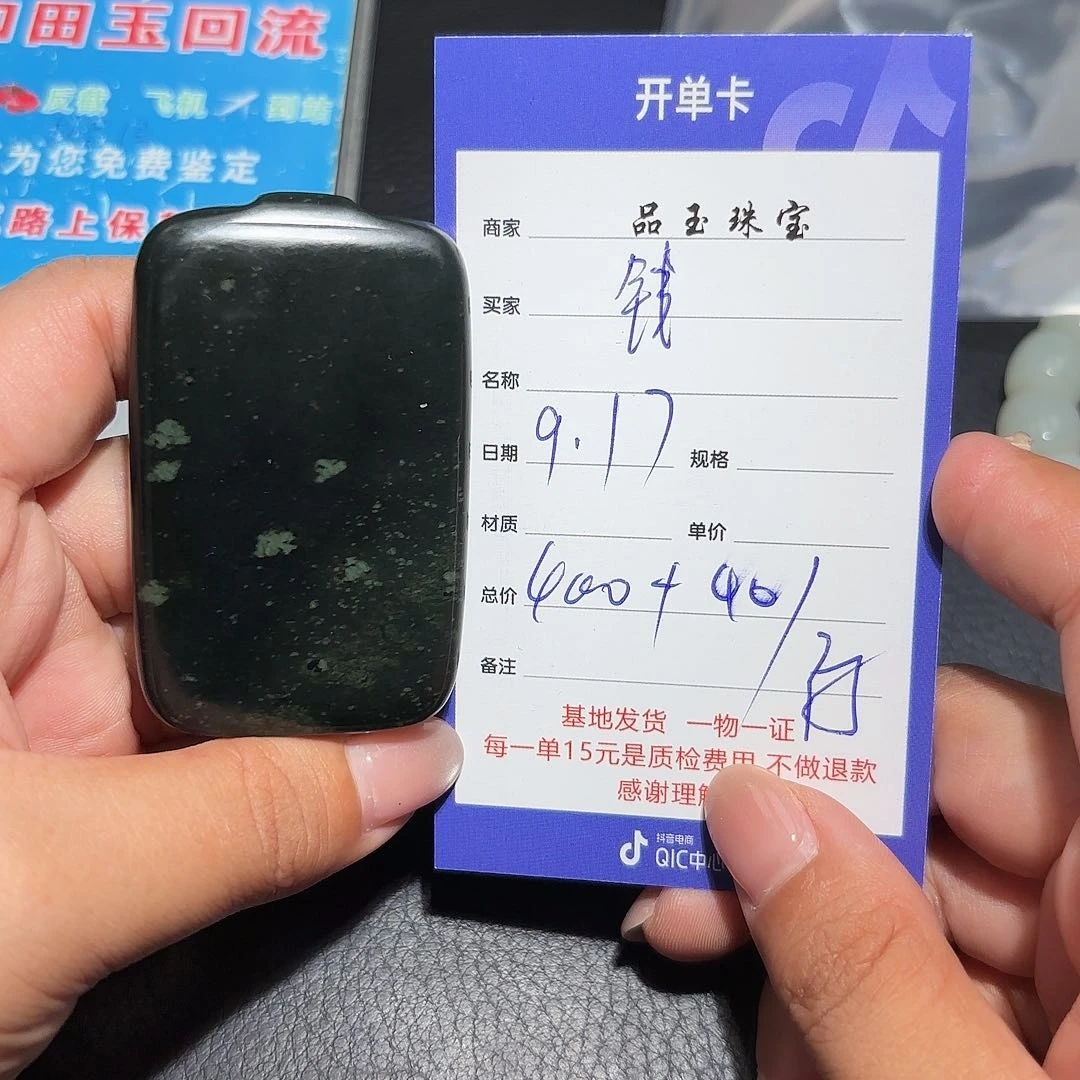 田玉回流
反截 飞机 到站
为您免费鉴定
路上保
开单卡
商家 品玉珠宝
买家 钱
名称
日期 9.17 规格
材质 单价
总价 400+40/
备注
基地发货 一物一证
每一单15元是质检费用 不做退款
感谢理解
抖音电商
QIC中心